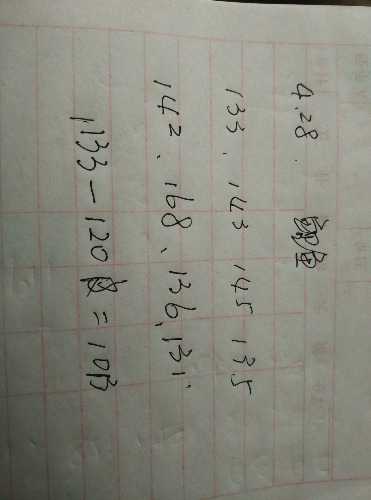 4.28.
133. 143 145 135
142、168、136、131
1133-120=1013